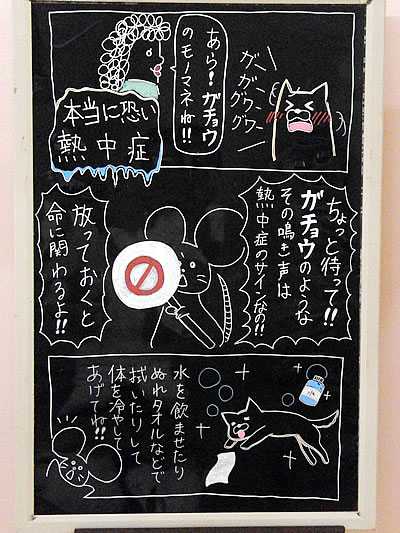 本当に恐い
熱中症
ガーガー
グワーグワー
あら！ガチョウ
のモノマネね!!
ちょっと待って!!
ガチョウのような
その鳴き声は
熱中症のサインなの!!
放っておくと
命に関わるよ!!
水を飲ませたり
ぬれタオルなどで
拭いたりして
体を冷やして
あげてね!!
水